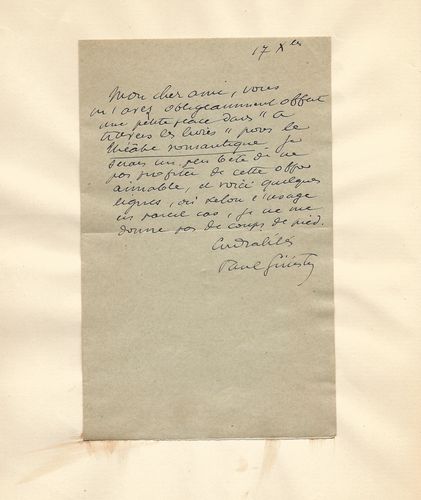 17 Xbre
Mon cher ami, vous
m'avez obligeamment offert
une petite place dans "à
travers les livres" pour le
théâtre romantique. Je
serais un peu bête de ne
pas profiter de cette offre
aimable, et voici quelques
lignes, où selon l'usage
en pareil cas, je ne me
donne pas de coups de pied.
Cordialités
Paul Ginisty